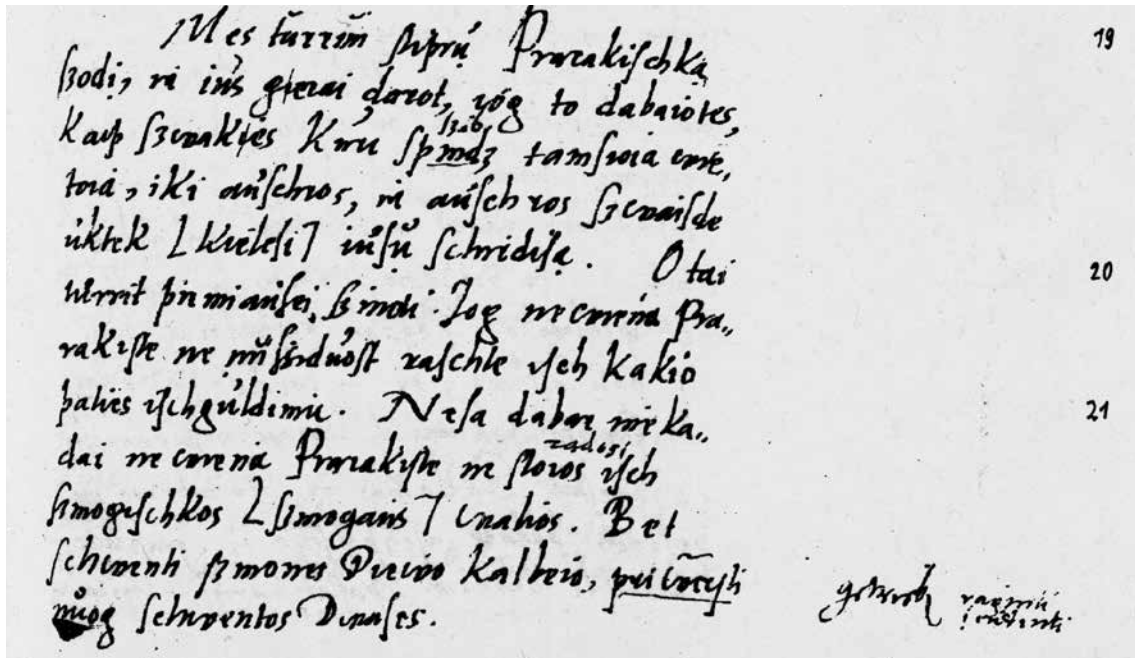 Mes turrim stiprų Prarakischką 19
szodį, ir ius gierai darot, jog to dabaiotes,
kaip szwakies kuri tamsioia wie„
toia, iki auschros, ir auschros szwaisde
usztek [kielesi] iusų schirdisą. O tai 20
turrit pirmiausei szinoti. Jog ne wiena Pra„
rakiste ne nusziduost raschte isch kakio
paties ischguldimu. Nesa dabar nieka„ 21
dai ne wiena Prarakiste ne stoios isch
rados
szmogischkos [szmogaus] walios. Bet
schwenti szmones Diewo kalbeio,
nuog schwentos Dwases.